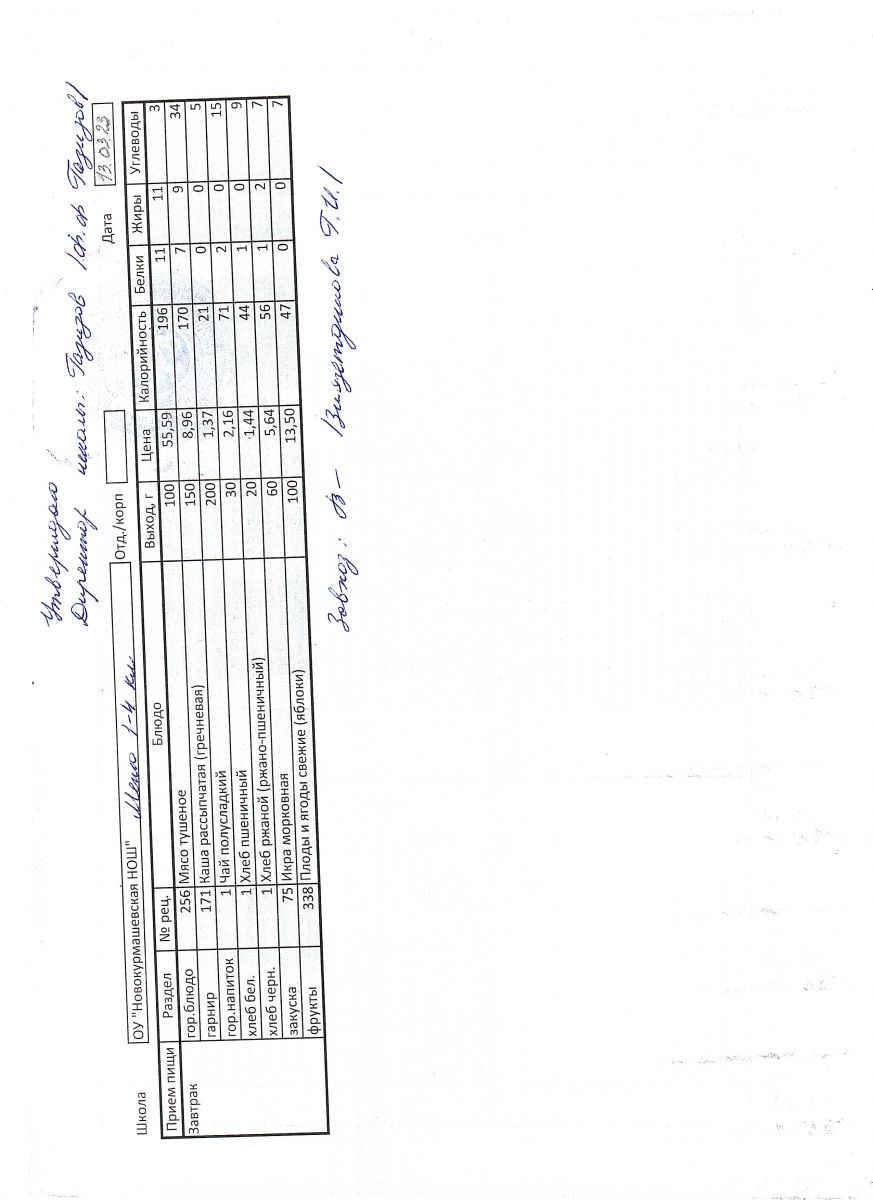 Утверждаю
Директор школы: Газизов /Ф.Ф Газизов/
Школа ОУ "Новокурмашевская НОШ" Меню 1-4 кл. Отд./корп Дата 13.03.23
Прием пищи Раздел № рец. Блюдо Выход, г Цена Калорийность Белки Жиры Углеводы
Завтрак гор.блюдо 256 Мясо тушеное 100 55,59 196 11 11 3
гарнир 171 Каша рассыпчатая (гречневая) 150 8,96 170 7 9 34
гор.напиток 1 Чай полусладкий 200 1,37 21 0 0 5
хлеб бел. 1 Хлеб пшеничный 30 2,16 71 2 0 15
хлеб черн. 1 Хлеб ржаной (ржано-пшеничный) 20 1,44 44 1 0 9
закуска 75 Икра морковная 60 5,64 56 1 2 7
фрукты 338 Плоды и ягоды свежие (яблоки) 100 13,50 47 0 0 7
Завхоз: Г.И./